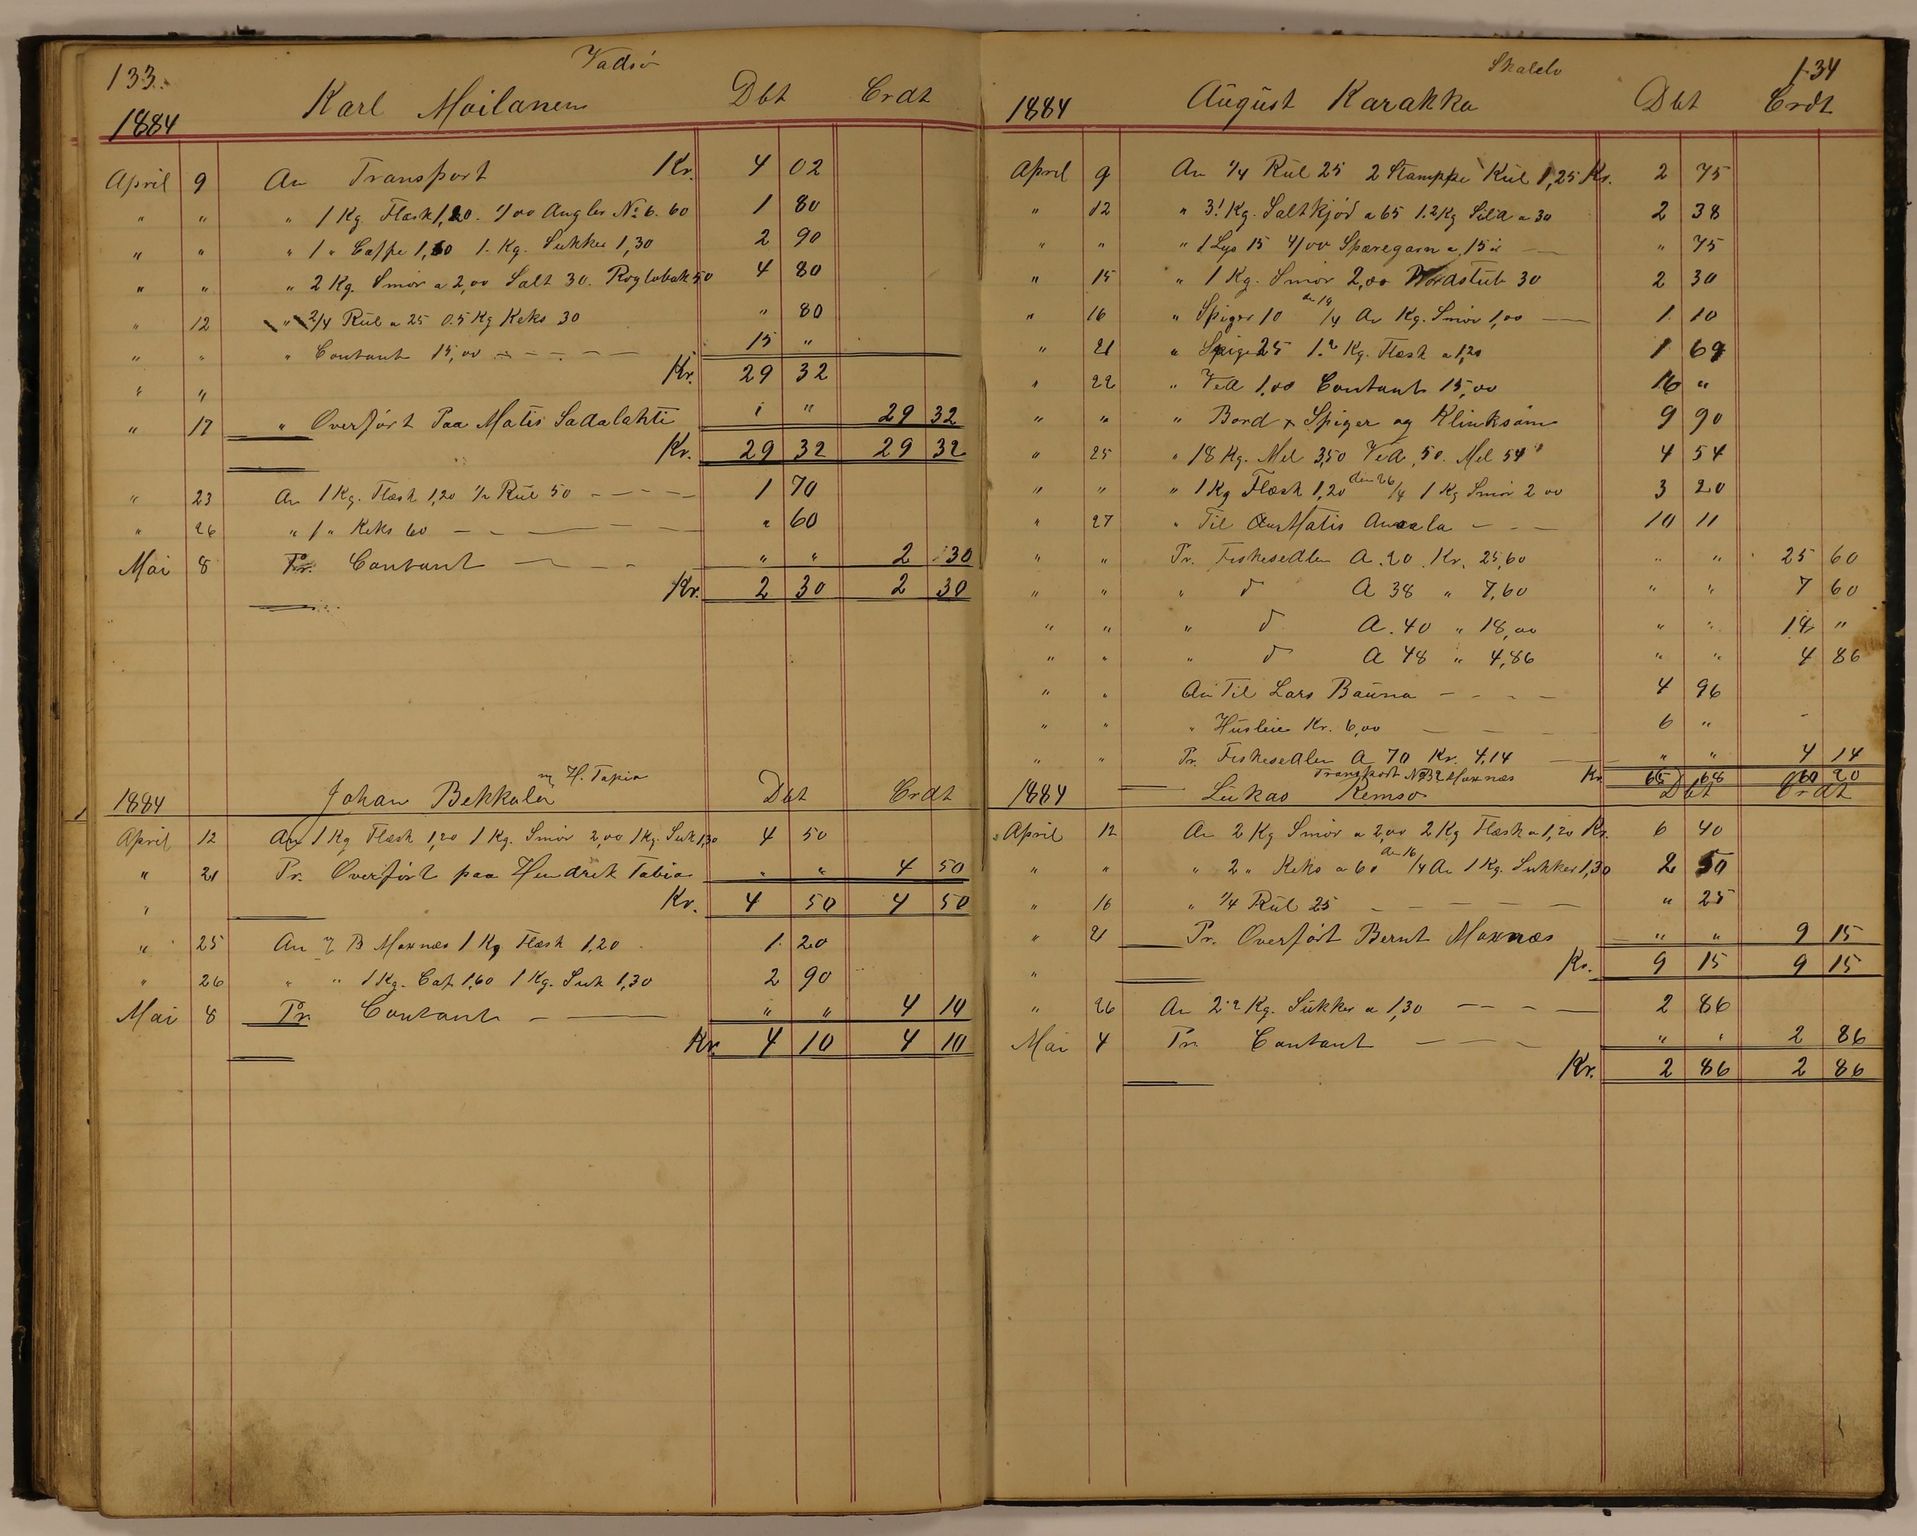 133.
Vadsö
1884 Karl Moilanen Dbt Crdt
April 9 An Transport Kr. 4 02
" " " 1 Kg Flæsk 1,20. 1/00 Angler No 6. 60 1 80
" " " 1 " Caffe 1,60 1. Kg. Sukker 1,30 2 90
" " " 2 Kg. Smör a 2,00 Salt 30. Røgtobak 50 4 80
" 12 " 2/4 Rul a 25 0.5 Kg Keks 30 " 80
" " " Contant 15,00 15 "
" " Kr. 29 32
" 17 " Overført Paa Matis Sadalahti " " 29 32
Kr. 29 32 29 32
" 23 An 1 Kg. Flæsk 1,20 1/2 Rul 50 1 70
" 26 " 1 " Keks 60 " 60
Mai 8 Pr. Contant " " 2 30
Kr. 2 30 2 30
1884 Johan Bekkala H. Tapia Dbt Crdt
April 12 An 1 Kg Flæsk 1,20 1 Kg. Smör 2,00 1 Kg. Suk 1,30 4 50
" 21 Pr. Overført paa Hendrik Tabia " " 4 50
" Kr. 4 50 4 50
" 25 An B Moxnæs 1 Kg Flæsk 1,20 1 20
" 26 " " 1 Kg. Caf 1,60 1 Kg. Suk 1,30 2 90
Mai 8 Pr Contant " " 4 10
Kr. 4 10 4 10
134
Skalelv
1884 August Karakka Dbt Crdt
April 9 An 1/4 Rul 25 2 Stamppe Kul 1,25 Kr. 2 75
" 12 " 3.1 Kg. Saltkjød a 65 1.2 Kg Sild a 30 2 38
" " " 1 Lys 15 4/00 Spæregarn a 15 " 75
" 15 " 1 Kg. Smör 2,00 30 2 30
" 16 " Spiger 10 1/4 An Kg. Smör 1,00 1 10
" 21 " Spiger 25 1.2 Kg. Flæsk a 1,20 1 69
" 22 " Ved 1,00 Contant 15,00 16 "
" " " Bord x Spiger og Klinksöm 9 90
" 25 " 18 Kg. Mel 3,50 Ved ,50. Mel 54 4 54
" " " 1 Kg Flæsk 1,20 den 26/4 1 Kg Smör 2 00 3 20
" 27 " Til Matis 10 11
" " Pr. Fiskesedlen A. 20. Kr. 25,60 " " 25 60
" " " d A 38 " 7,60 " " 7 60
" " " d A. 40 " 18,00 " " 18 "
" " " d A 48 " 4,86 " " 4 86
" " An Til Lars Bauna 4 96
" " " Husleie Kr. 6,00 6 "
" " Pr. Fiskesedlen A 70 Kr. 4,14 " " 4 14
Transport No 32 Moxnæs Kr. 65 68 60 20
1884 Lukas Remso Dbt Crdt
April 12 An 2 Kg Smör a 2,00 2 Kg Flæsk a 1,20 Kr. 6 40
" " " 2 " Keks a 60 den 16/4 An 1 Kg. Sukker 1,30 2 50
" 16 " 1/4 Rul 25 " 25
" 21 Pr. Overført Bernt Moxnæs " " 9 15
" Kr. 9 15 9 15
" 26 An 2.2 Kg. Sukker a 1,30 2 86
Mai 4 Pr. Contant " " 2 86
Kr. 2 86 2 86